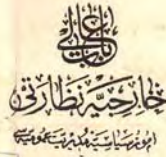 باب عالی
خارجیه نظارتی
امور سیاسیه مدیریت عمومیه‌سی